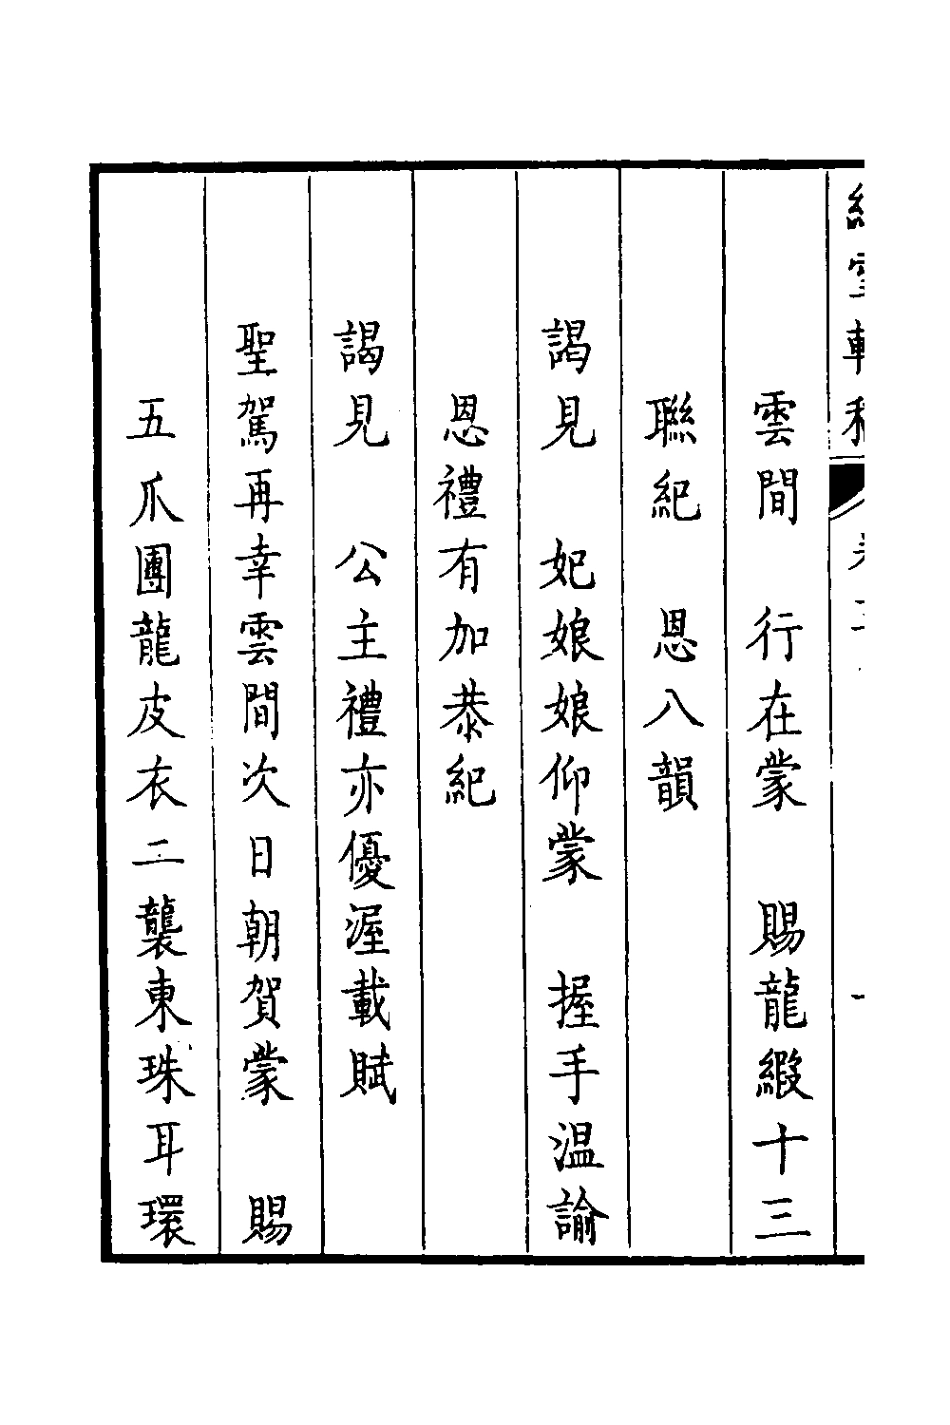 雲間　行在蒙　賜龍緞十三
聯紀　恩八韻
謁見　妃娘娘仰蒙　握手温諭
恩禮有加恭紀
謁見　公主禮亦優渥載賦
聖駕再幸雲間次日朝賀蒙　賜
五爪團龍皮衣二襲東珠耳環